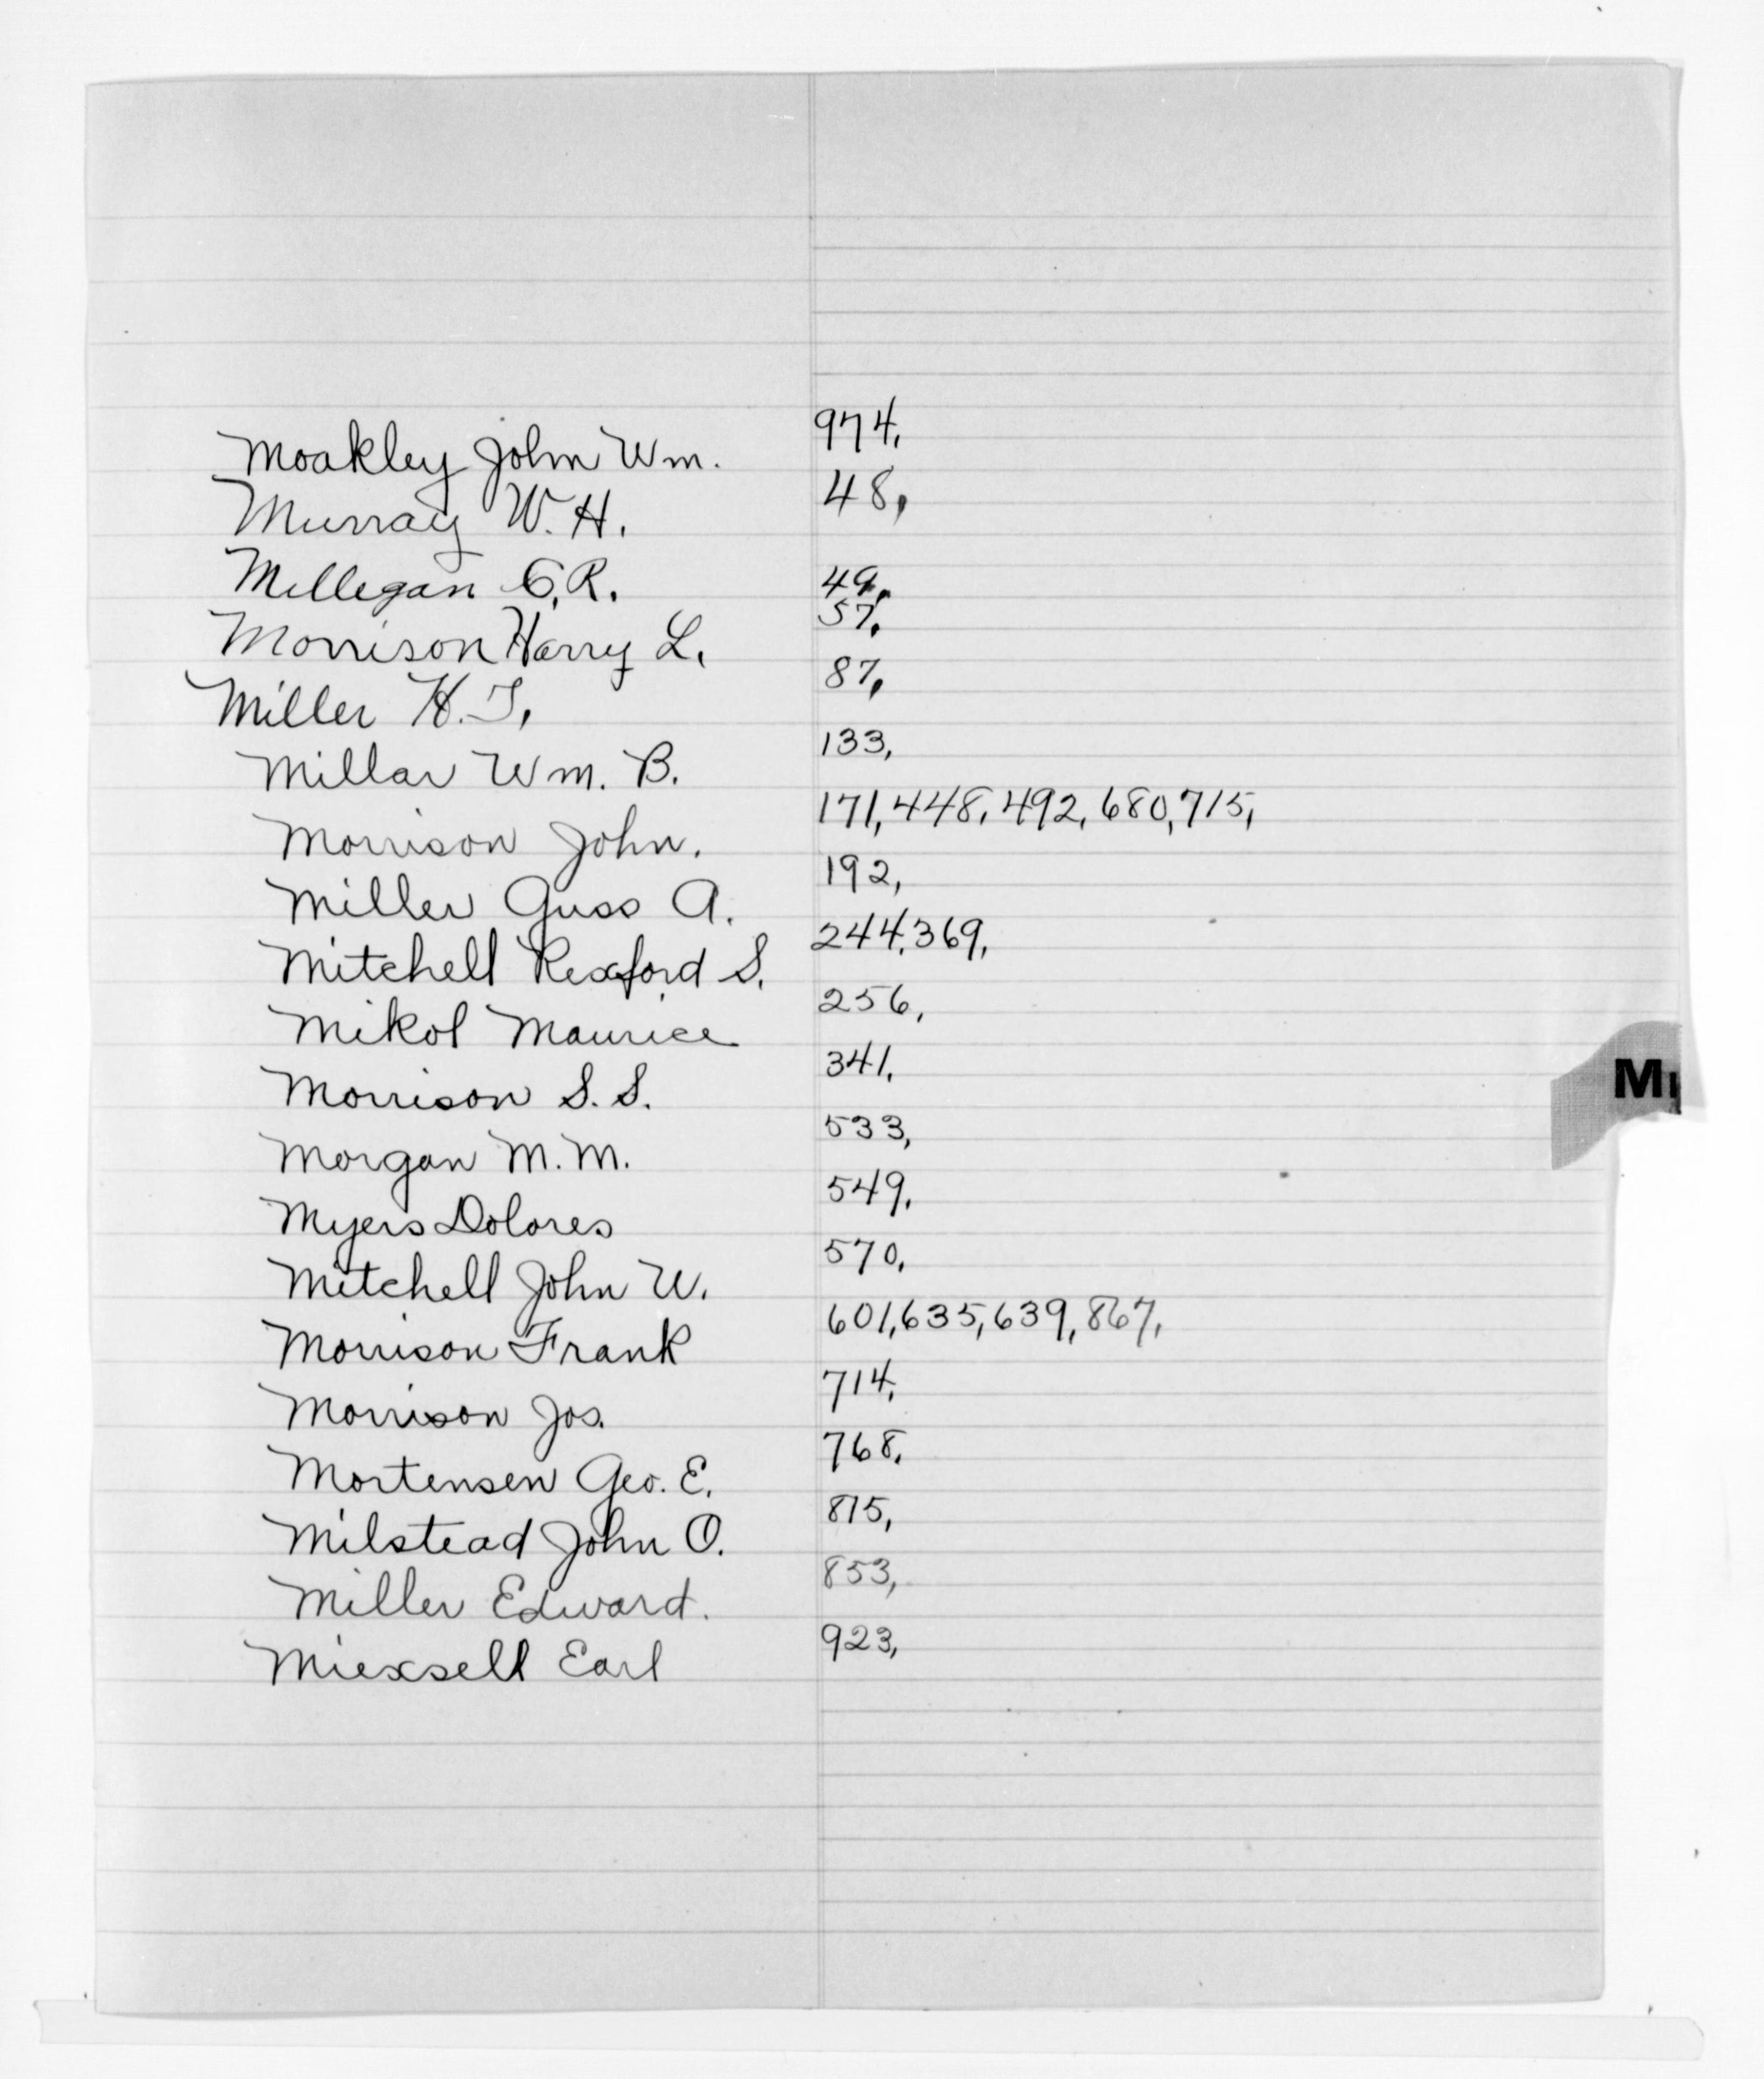 Moakley John Wm. 974,
Murray W. H. 48,
Millegan C. R. 49,
Morrison Harry L. 57,
Miller H. T. 87,
Millar Wm. B. 133,
Morrison John. 171, 448, 492, 680, 715,
Miller Guss A. 192,
Mitchell Rexford S. 244, 369,
Mikol Maurice 256,
Morrison S. S. 341,
Morgan M. M. 533,
Myers Dolores 549,
Mitchell John W. 570,
Morrison Frank 601, 635, 639, 867,
Morrison Jos. 714,
Mortensen Geo. E. 768,
Milstead John O. 815,
Miller Edward. 853,
Miexsell Earl 923,
M